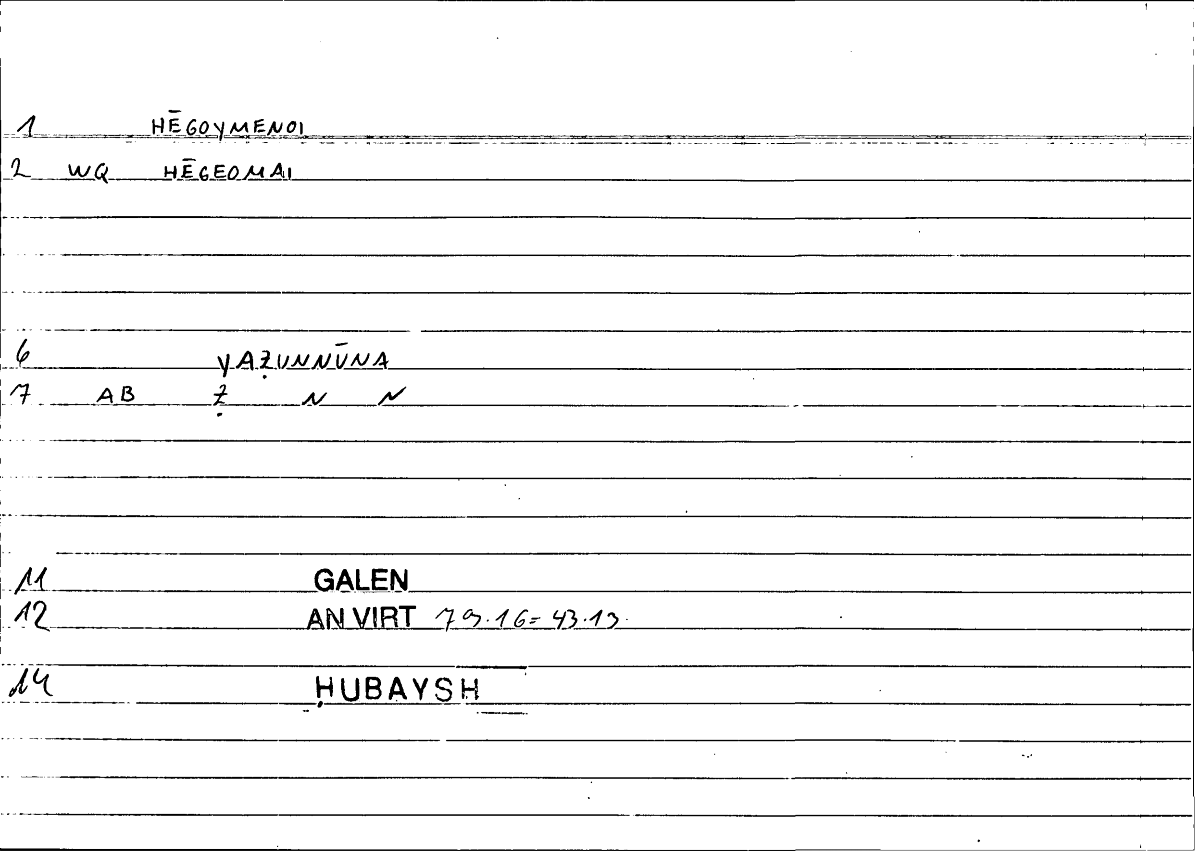 1 HĒGOYMENOI
2 WQ HĒGEOMAI
6 YAẒUNNŪNA
7 AB Ẓ N N
11 GALEN
12 AN VIRT 79.16=43.13
14 ḤUBAYSH